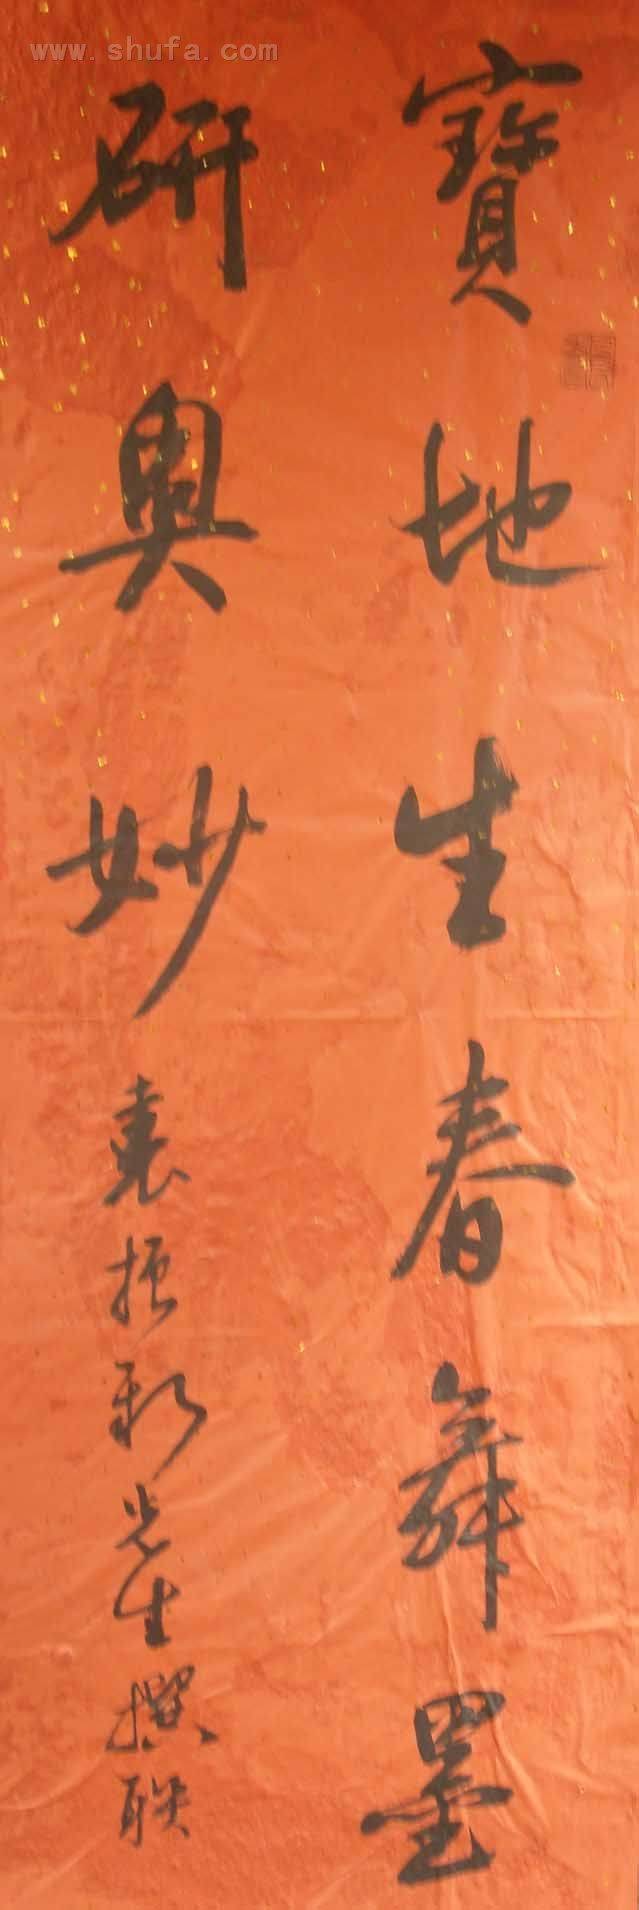 www.shufa.com
寶地生春舞墨
研奥妙
袁振新先生撰联